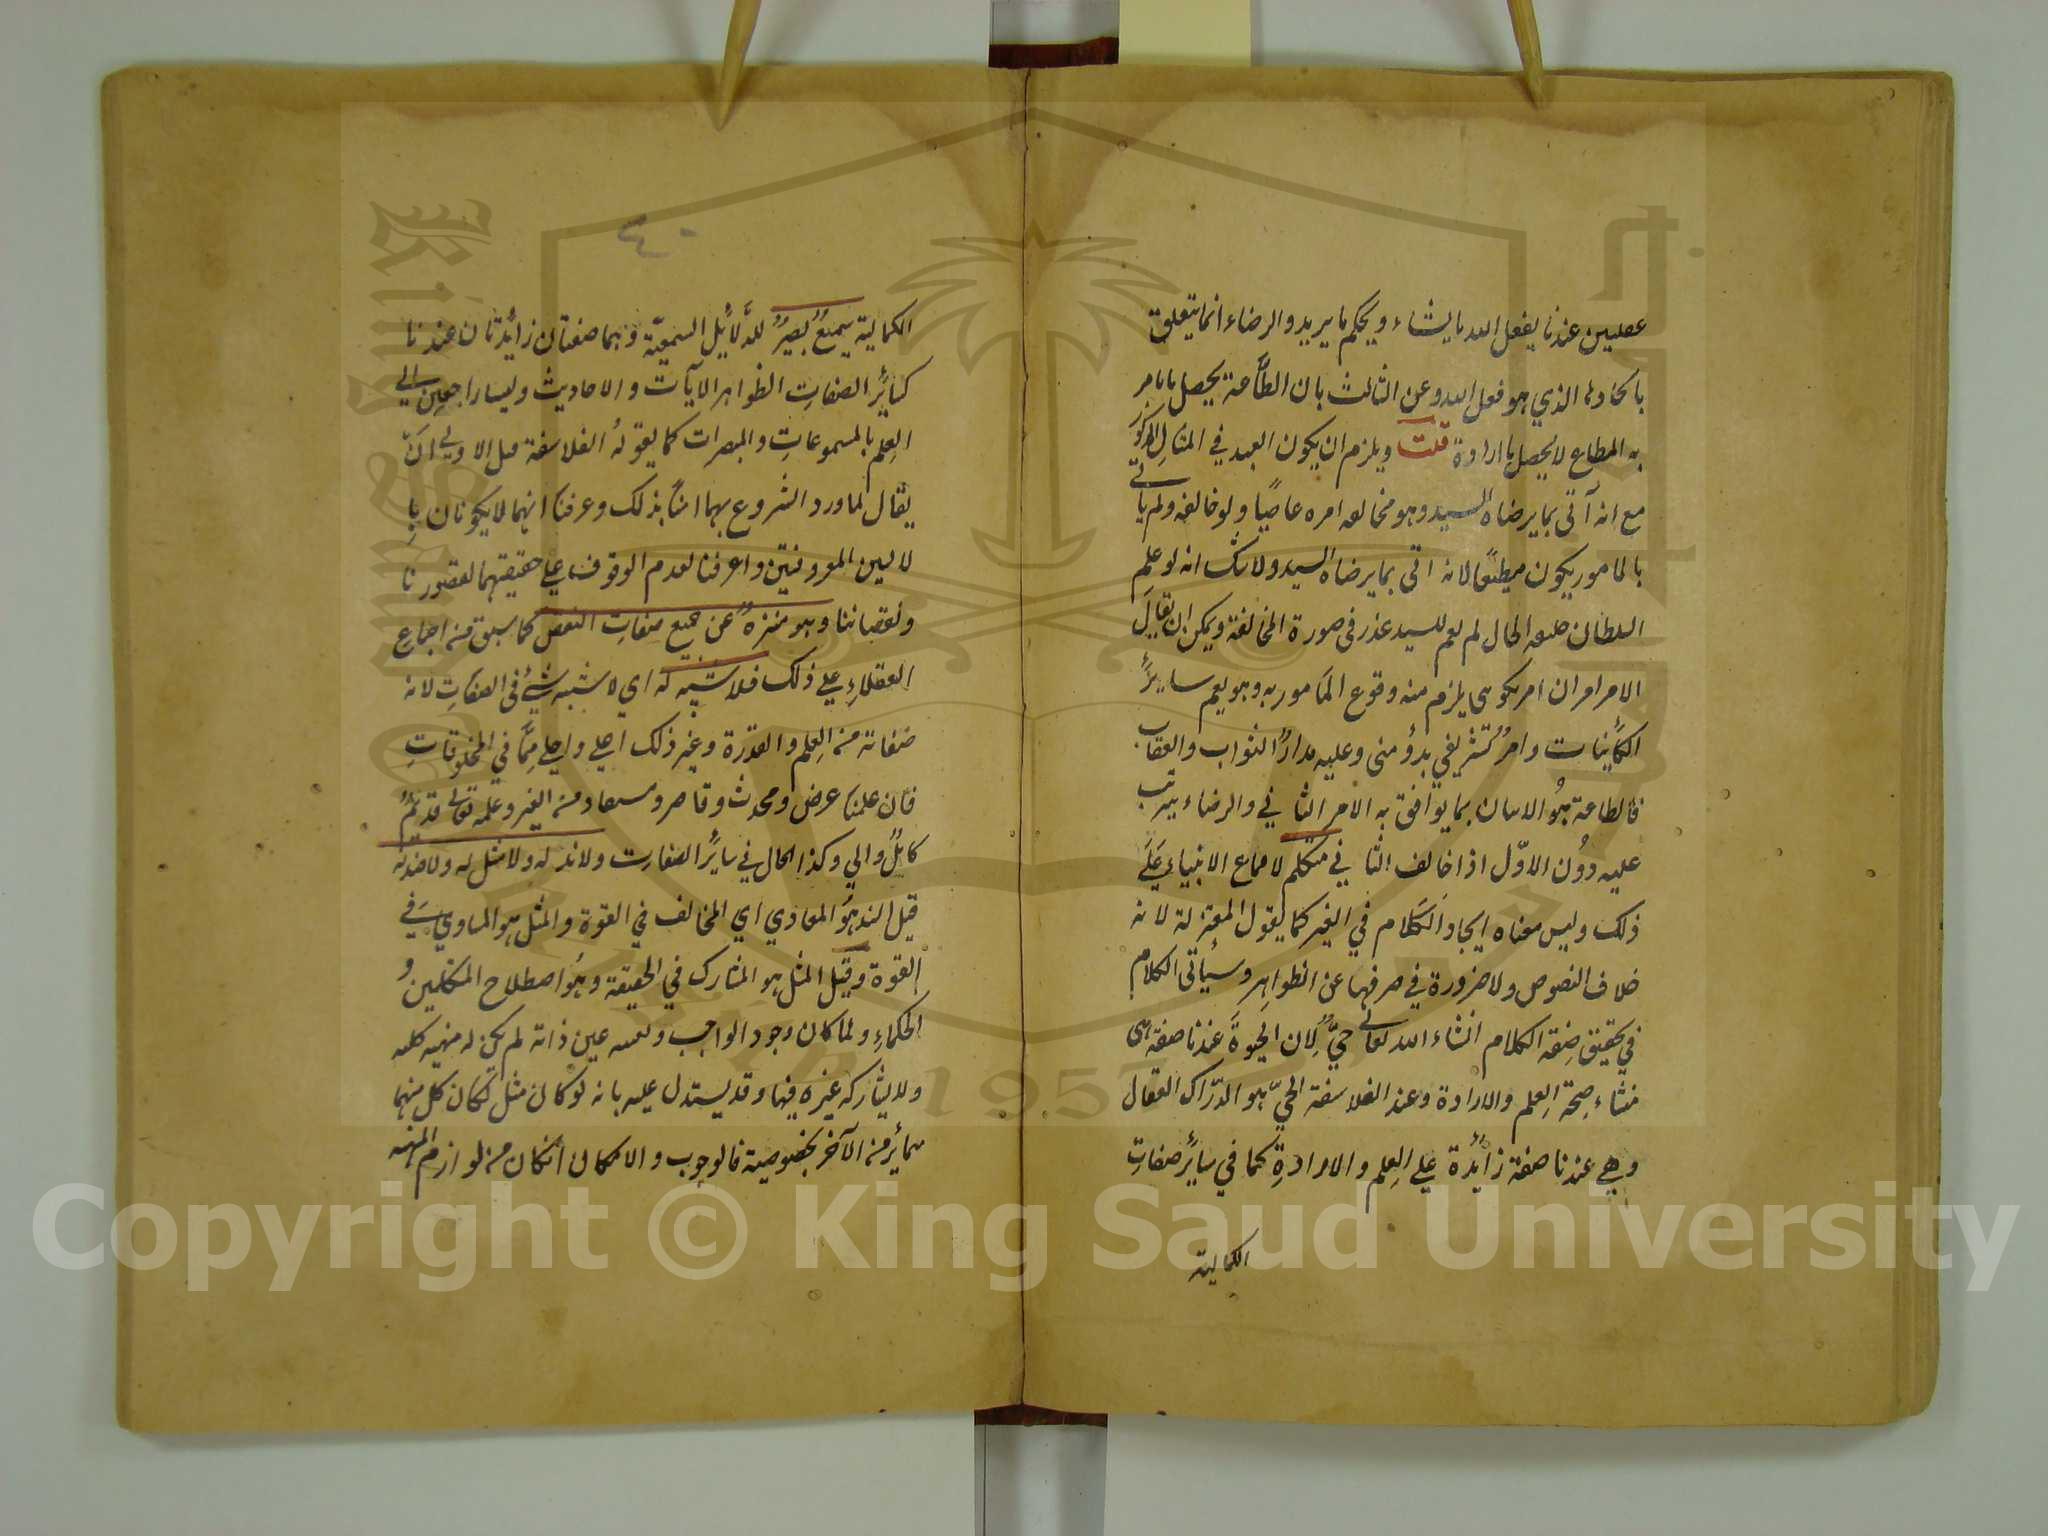 عقليين عندنا يفعل الله ما يشاء ويحكم ما يريد والرضاء انما يتعلق
بايجاده الذي هو فعل الله وعن الثالث بان الطّاعة يحصل بالامر
به المطاع لا يحصل بارادة قلت ويلزم ان يكون العبد في المثال المذكور
مع انه آتى بما يرضاه السيد وهو مخالفه امره عاصيًا ولو خالفه ولم ياتى
بالمامور يكون مطيعًا لانه اتى بما يرضاه السيد ولا شك انه لو علم
السلطان حقيقه الحال لم يقم للسيد عذر في صورة المخالفة ويمكن ان يقال
الامر امران امر تكويني يلزم منه وقوع المأمور به وهو يعم سايرٔ
الكأينات وامرٌ تشريفي وعليه مدارُ الثواب والعقاب
فالطاعة هُو الاتيان بما يوافق به الامر الثاني والرضاء يترتب
عليه دوُن الاوّل اذا خالف الثاني متكلم لاجماع الانبياء عَلَى
ذلك وليس معناه ايجاد الكَلام في الغير كما يقول المعتزلة لانه
خلاف النصوص ولا ضرورة في صرفها عن الظواهِرِ وسيأتى الكلام
في تحقيق صِفة الكلام انشاء الله تعالى حيٌّ لِان الحيوةَ عندنا صفة هى
منشاء صِحة العِلم والارادة وعند الفلاسفة الحيّ هو الدّراك الفعّال
وهي عندنا صفة زائدة على العِلم والارادةِ كما في سايرٔ صفاتِ
الكمالية
الكمالية سميعٌ بصيرٌ للدّلائل السمعيّة وهما صفتان زائدتان عندنا
كسايرٔ الصفاتِ الظواهر الآيات والاحاديث وليسا راجعين الى
العِلم بالمسموعاتِ والمبصرات كما يقولهُ الفلاسفة قيل الاولى انّ
يقال لما ورد الشروع بهما امنّا بذلك وعرفنا انهما لا يكونان بِا
لالتين المعروفتين واعرفنا لعدم الوقوف على حقيقتهما لقصورنا
ونقصاننا وهو منزهٌ عن جميع صفاتِ النقص كما سبق من اجماع
العقلاءِ على ذلك فلا شبيه له اي لا شبه شئ في الصفاتِ لانه
صفاته من العِلم والقدرة وغير ذلك اجلي واعلي ممّا في المخلوقاتِ
فان علمنا عرض ومحدث وقاصر ومستفاد من الغير وعلمه تعالى قديمٌ
كاملٌ والي وكذا الحال في سايرٔ الصفات ولاند له ولا مثل له ولا ضد له
قيل الند هُو المعادي اي المخالف في القوة والمثل هو المساوي في
القوة وقيل المثل هو المشارك في الحقيقة وهُو اصطلاح المتكلمين و
الحكماءِ ولما كان وجود الواجب ونفسه عين ذاته لم يكن له مهيه كليه
ولا يشاركه غيره فيها وقد يستدل عليه بانه لو كان مثل لكان كل منهما
متمايزٔ من الآخر بخصوصية فالوجوب والامكان انكان من لوازم المهيه
Copyright © King Saud University
1957